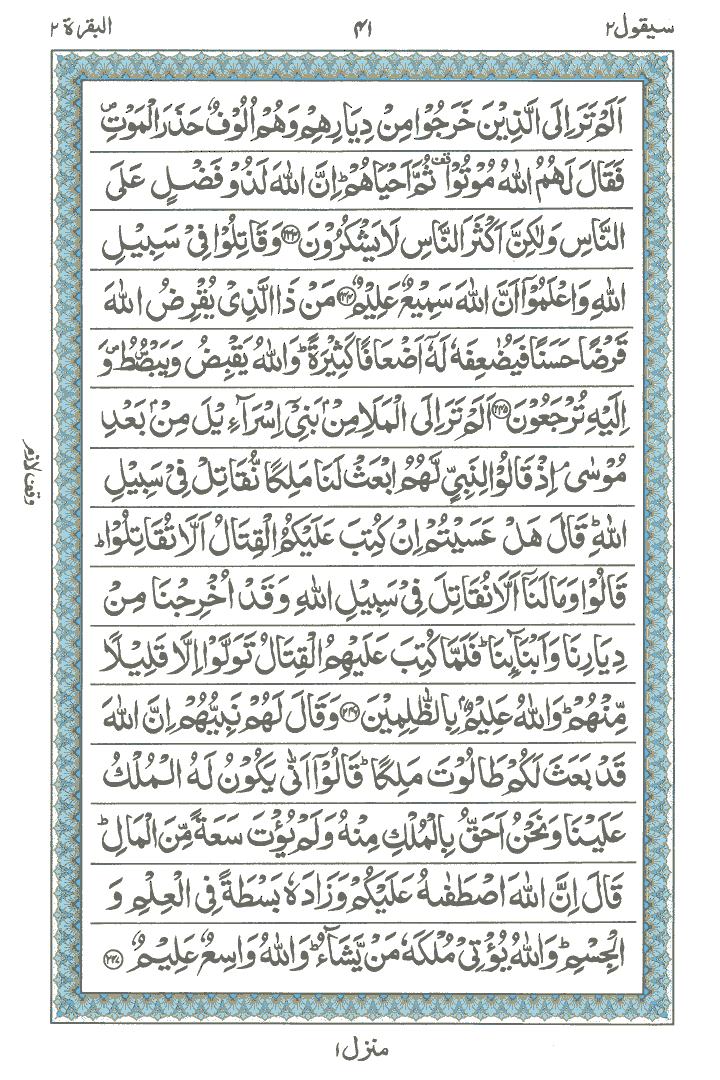 سيقول ٢ ٤١ البقرة ٢
اَلَمْ تَرَ اِلَى الَّذِيْنَ خَرَجُوْا مِنْ دِيَارِهِمْ وَهُمْ اُلُوْفٌ حَذَرَ الْمَوْتِ ۪
فَقَالَ لَهُمُ اللّٰهُ مُوْتُوْا ۫ ثُمَّ اَحْيَاهُمْ ؕ اِنَّ اللّٰهَ لَذُوْ فَضْلٍ عَلَى
النَّاسِ وَلٰكِنَّ اَكْثَرَ النَّاسِ لَا يَشْكُرُوْنَ ﴿۲۴۳﴾ وَقَاتِلُوْا فِيْ سَبِيْلِ
اللّٰهِ وَاعْلَمُوْٓا اَنَّ اللّٰهَ سَمِيْعٌ عَلِيْمٌ ﴿۲۴۴﴾ مَنْ ذَا الَّذِيْ يُقْرِضُ اللّٰهَ
قَرْضًا حَسَنًا فَيُضٰعِفَهٗ لَهٗٓ اَضْعَافًا كَثِيْرَةً ؕ وَاللّٰهُ يَقْبِضُ وَيَبْصُۜطُ ۪ وَ
اِلَيْهِ تُرْجَعُوْنَ ﴿۲۴۵﴾ اَلَمْ تَرَ اِلَى الْمَلَاِ مِنْۢ بَنِيْٓ اِسْرَآءِيْلَ مِنْۢ بَعْدِ
مُوْسٰى ۘ اِذْ قَالُوْا لِنَبِيٍّ لَّهُمُ ابْعَثْ لَنَا مَلِكًا نُّقَاتِلْ فِيْ سَبِيْلِ
اللّٰهِ ؕ قَالَ هَلْ عَسَيْتُمْ اِنْ كُتِبَ عَلَيْكُمُ الْقِتَالُ اَلَّا تُقَاتِلُوْا ؕ
قَالُوْا وَمَا لَنَآ اَلَّا نُقَاتِلَ فِيْ سَبِيْلِ اللّٰهِ وَقَدْ اُخْرِجْنَا مِنْ
دِيَارِنَا وَاَبْنَآئِنَا ؕ فَلَمَّا كُتِبَ عَلَيْهِمُ الْقِتَالُ تَوَلَّوْا اِلَّا قَلِيْلًا
مِّنْهُمْ ؕ وَاللّٰهُ عَلِيْمٌۢ بِالظّٰلِمِيْنَ ﴿۲۴۶﴾ وَقَالَ لَهُمْ نَبِيُّهُمْ اِنَّ اللّٰهَ
قَدْ بَعَثَ لَكُمْ طَالُوْتَ مَلِكًا ؕ قَالُوْٓا اَنّٰى يَكُوْنُ لَهُ الْمُلْكُ
عَلَيْنَا وَنَحْنُ اَحَقُّ بِالْمُلْكِ مِنْهُ وَلَمْ يُؤْتَ سَعَةً مِّنَ الْمَالِ ؕ
قَالَ اِنَّ اللّٰهَ اصْطَفٰىهُ عَلَيْكُمْ وَزَادَهٗ بَسْطَةً فِي الْعِلْمِ وَ
الْجِسْمِ ؕ وَاللّٰهُ يُؤْتِيْ مُلْكَهٗ مَنْ يَّشَآءُ ؕ وَاللّٰهُ وَاسِعٌ عَلِيْمٌ ﴿۲۴۷﴾
وقف لازم
منزل ١